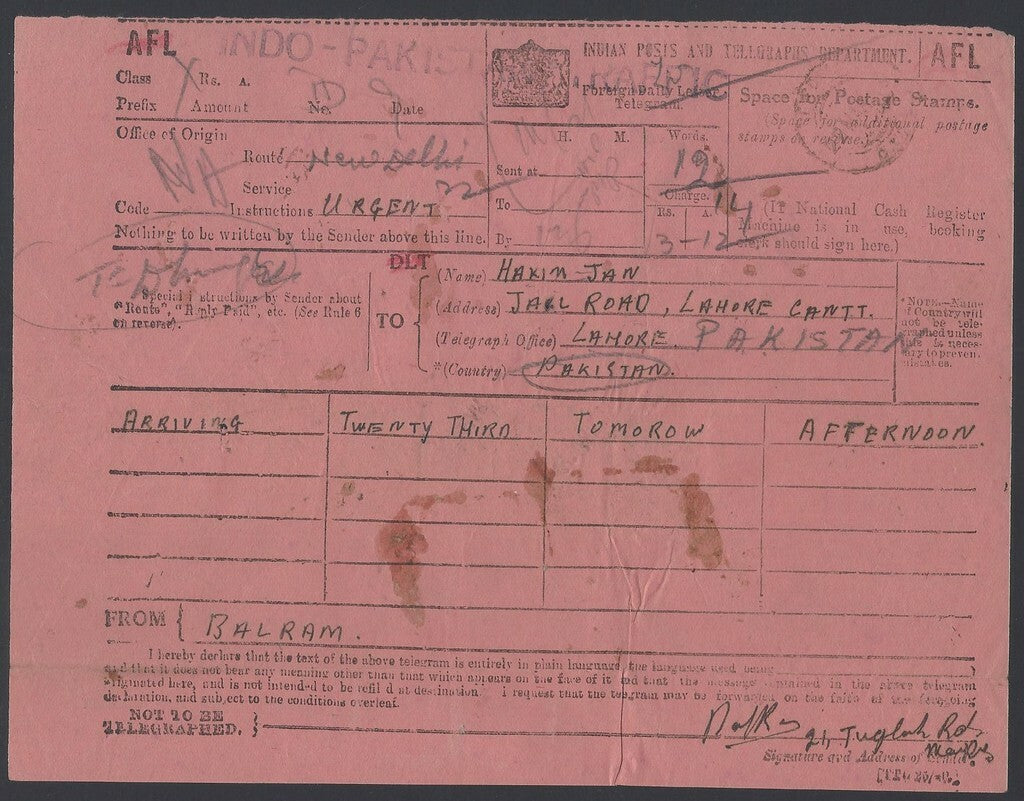 AFL INDO-PAKIST TRAFFIC
INDIAN POSTS AND TELEGRAPHS DEPARTMENT. AFL
Class Rs. A.
Prefix Amount No. Date
Foreign Daily Letter
Telegram
Space for Postage Stamps.
(Space for additional postage
stamps on reverse.)
Office of Origin
Route New Delhi
Service
Code Instructions URGENT
Nothing to be written by the Sender above this line.
H. M.
Sent at
To
By
Words.
19
Charge.
Rs. A.
3-12
(If National Cash Register
Machine is in use, booking
clerk should sign here.)
DLT
Special instructions by Sender about
"Route", "Reply Paid", etc. (See Rule 6
on reverse).
TO
(Name) HAKIM JAN
(Address) JAIL ROAD, LAHORE CANTT.
(Telegraph Office) LAHORE PAKISTAN
*(Country) PAKISTAN.
*NOTE—Name
of Country will
not be tele-
graphed unless
this is neces-
sary to preven
mistakes.
ARRIVING TWENTY THIRD TOMOROW AFTERNOON.
FROM BALRAM.
I hereby declare that the text of the above telegram is entirely in plain language, the language used being )
and that it does not bear any meaning other than that which appears on the face of it and that the message contained in the above telegram
originated here, and is not intended to be refil d at destination. I request that the telegram may be forwarded on the faith of the foregoing
declaration, and subject to the conditions overleaf.
NOT TO BE
TELEGRAPHED.
21, Tuglak Rd.
Signature and Address of Sender.